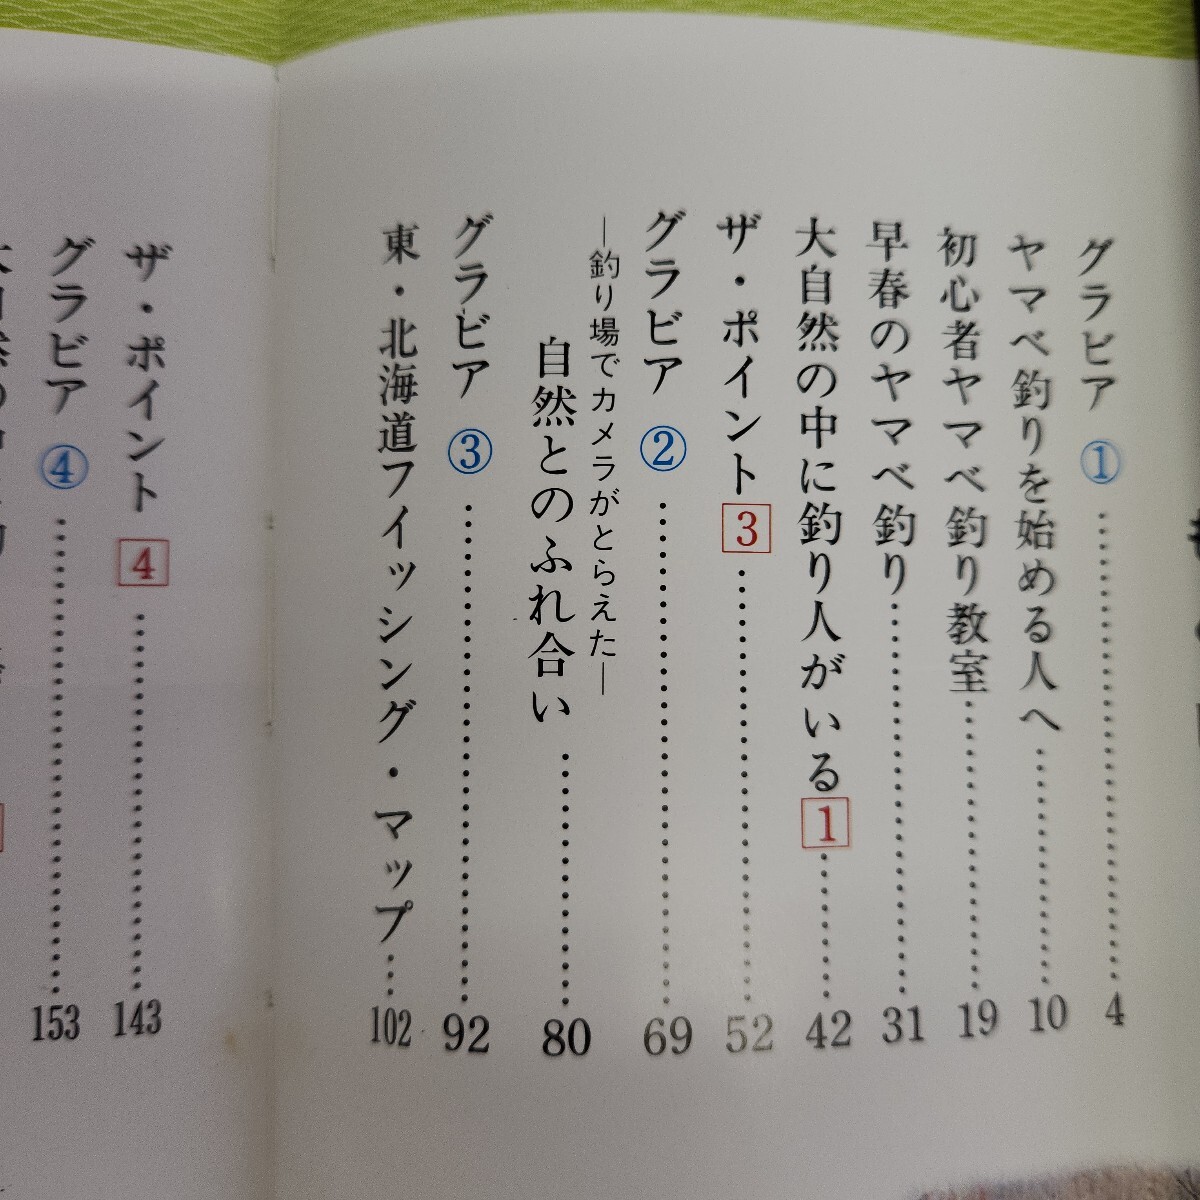 グラビア ①……4
ヤマベ釣りを始める人へ……10
初心者ヤマベ釣り教室……19
早春のヤマベ釣り……31
大自然の中に釣り人がいる 1……42
ザ・ポイント 3……52
グラビア ②……69
―釣り場でカメラがとらえた―
自然とのふれ合い……80
グラビア ③……92
東・北海道フィッシング・マップ…102
ザ・ポイント 4……143
グラビア ④……153